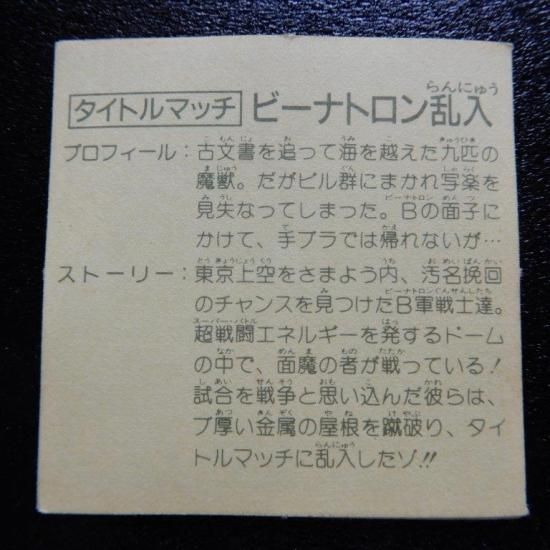 タイトルマッチ ビーナトロン乱入
プロフィール：古文書を追って海を越えた九匹の
魔獣。だがビル群にまかれ写楽を
見失なってしまった。Bの面子に
かけて、手ブラでは帰れないが…
ストーリー：東京上空をさまよう内、汚名挽回
のチャンスを見つけたB軍戦士達。
超戦闘エネルギーを発するドーム
の中で、面魔の者が戦っている！
試合を戦争と思い込んだ彼らは、
ブ厚い金属の屋根を蹴破り、タイ
トルマッチに乱入したゾ!!